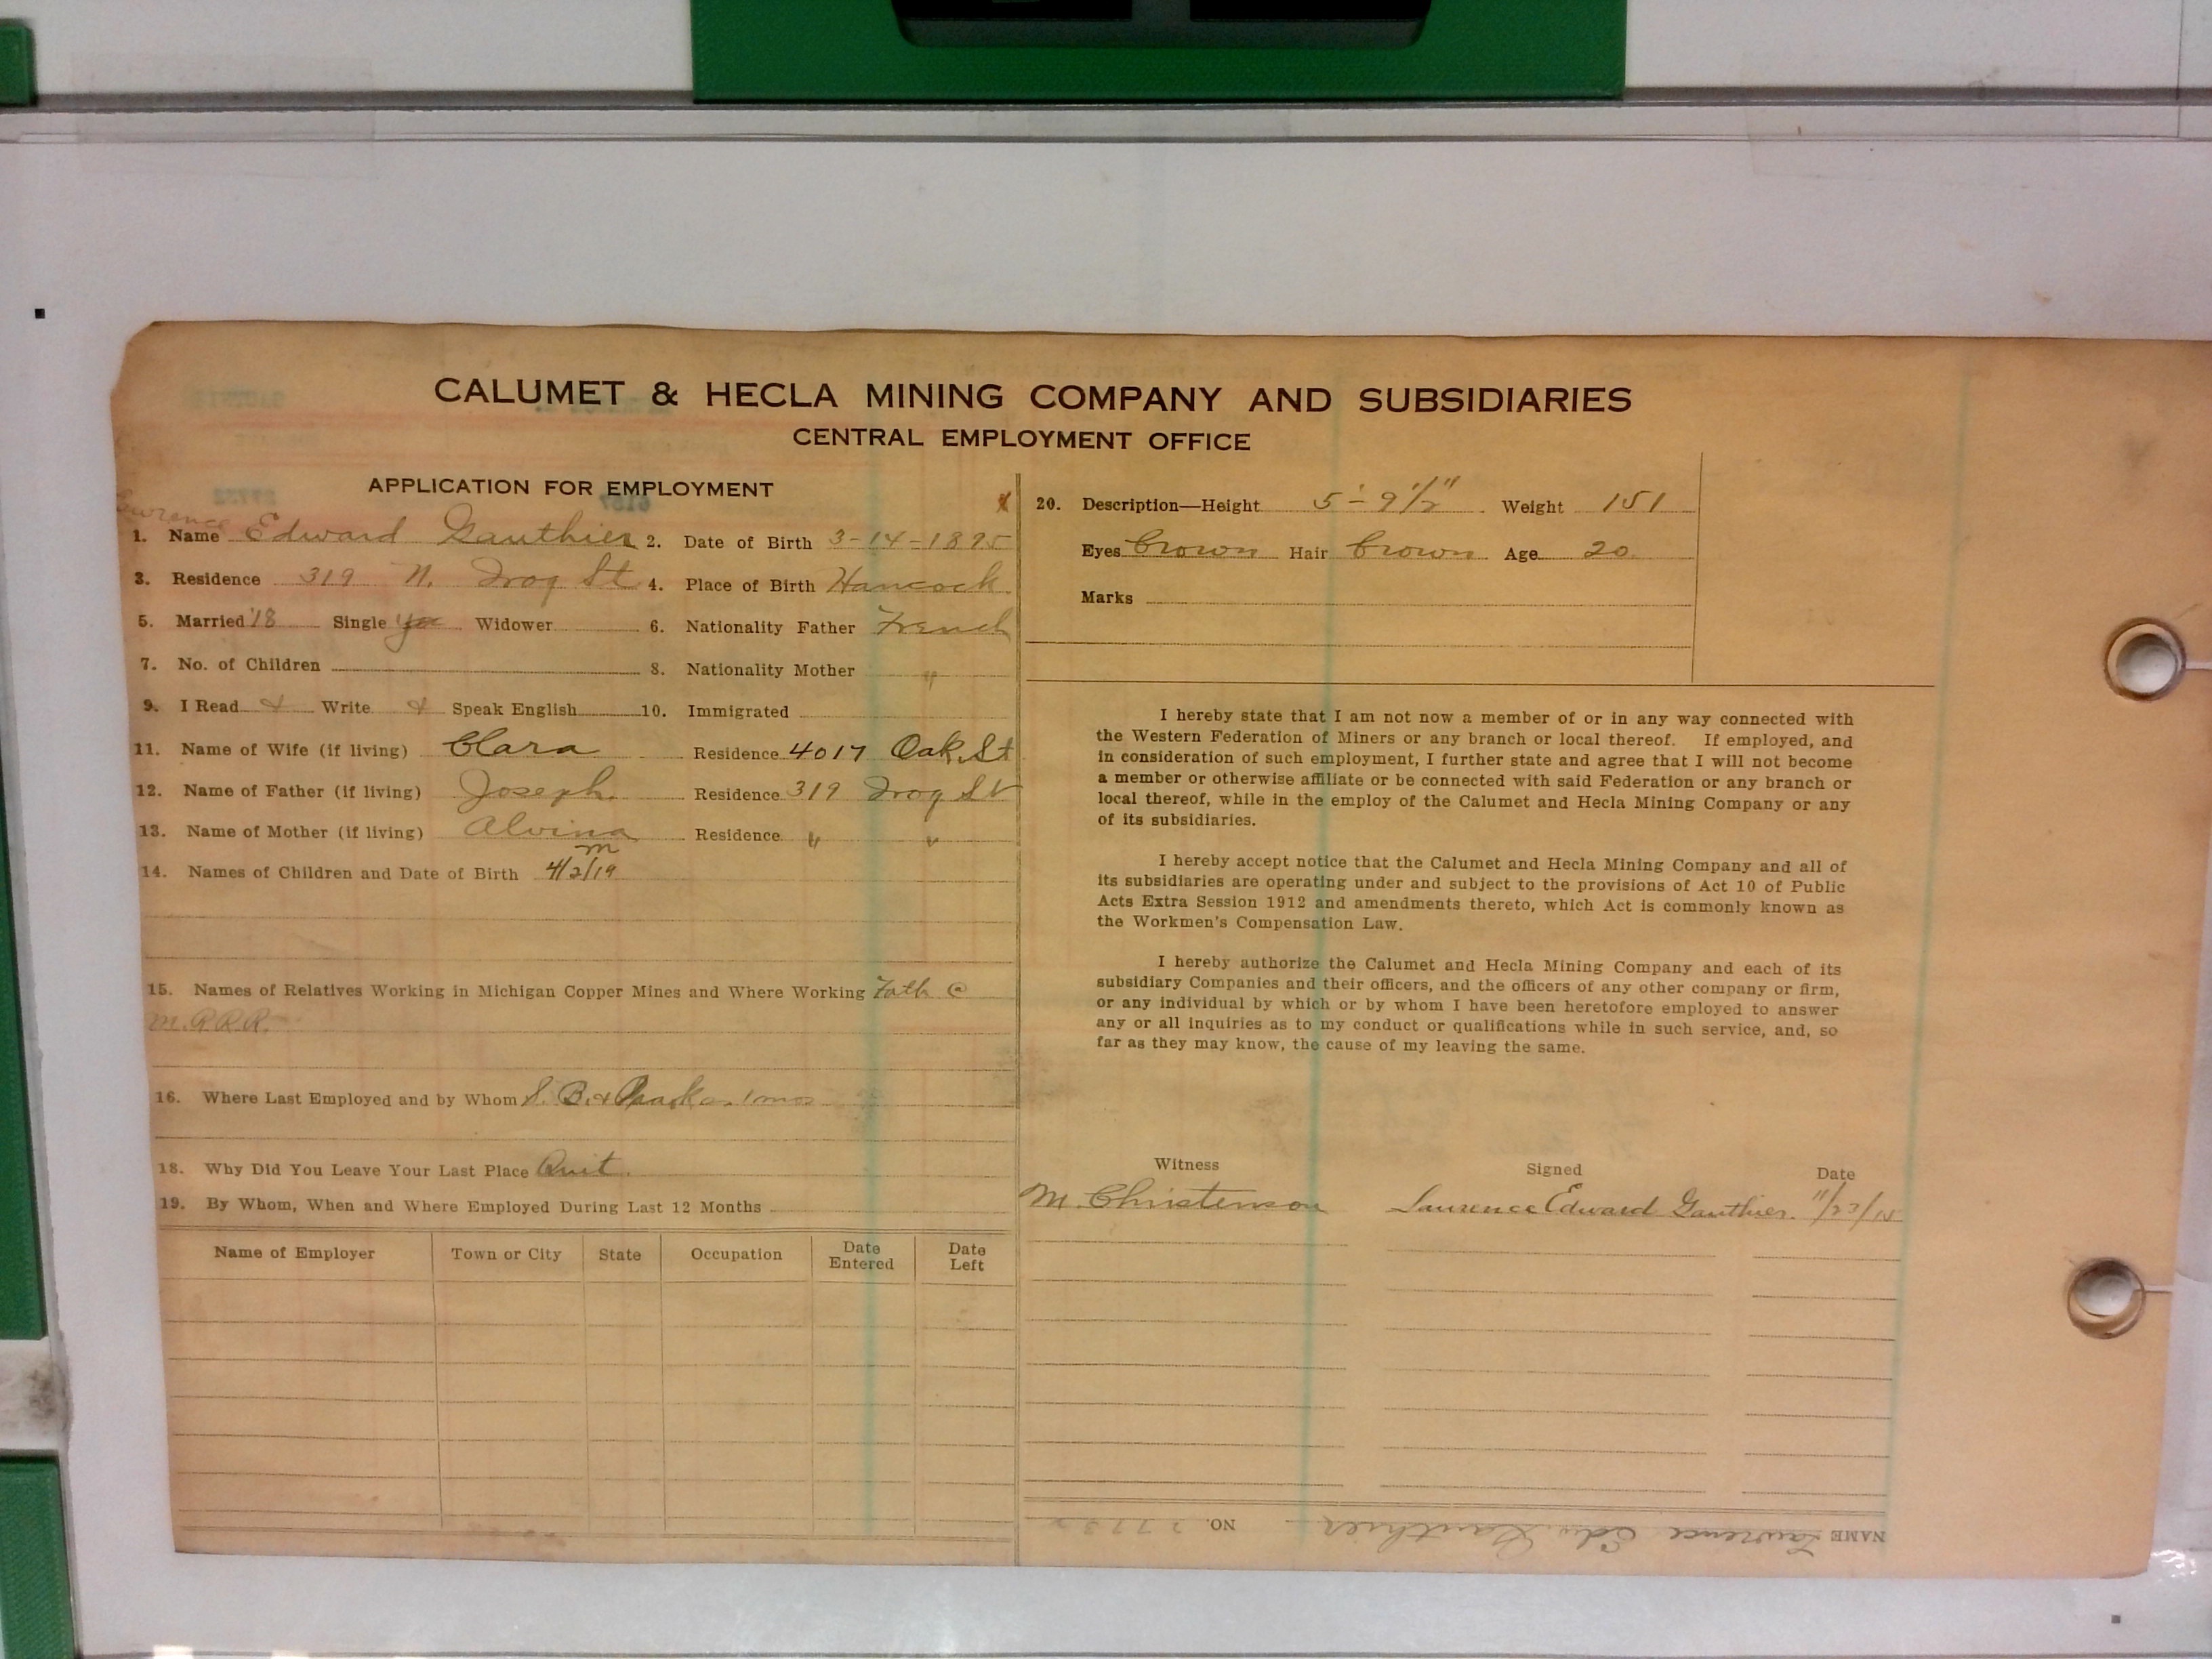 CALUMET & HECLA MINING COMPANY AND SUBSIDIARIES
CENTRAL EMPLOYMENT OFFICE
APPLICATION FOR EMPLOYMENT
Lawrence
1. Name Edward Gauthier 2. Date of Birth 3-14-1895
3. Residence 319 N. Frog St 4. Place of Birth Hancock
5. Married '18 Single yes Widower 6. Nationality Father French
7. No. of Children 8. Nationality Mother "
9. I Read & Write & Speak English 10. Immigrated
11. Name of Wife (if living) Clara Residence 4017 Oak St
12. Name of Father (if living) Joseph Residence 319 Frog St
13. Name of Mother (if living) Alvina Residence " "
m
14. Names of Children and Date of Birth 4/2/19
15. Names of Relatives Working in Michigan Copper Mines and Where Working Fath @
M.R.R.R.
16. Where Last Employed and by Whom S. B. & 1 mos
18. Why Did You Leave Your Last Place Quit.
19. By Whom, When and Where Employed During Last 12 Months
Name of Employer Town or City State Occupation Date Entered Date Left
20. Description—Height 5'-9 1/2" Weight 151
Eyes Brown Hair Brown Age 20
Marks
I hereby state that I am not now a member of or in any way connected with
the Western Federation of Miners or any branch or local thereof. If employed, and
in consideration of such employment, I further state and agree that I will not become
a member or otherwise affiliate or be connected with said Federation or any branch or
local thereof, while in the employ of the Calumet and Hecla Mining Company or any
of its subsidiaries.
I hereby accept notice that the Calumet and Hecla Mining Company and all of
its subsidiaries are operating under and subject to the provisions of Act 10 of Public
Acts Extra Session 1912 and amendments thereto, which Act is commonly known as
the Workmen's Compensation Law.
I hereby authorize the Calumet and Hecla Mining Company and each of its
subsidiary Companies and their officers, and the officers of any other company or firm,
or any individual by which or by whom I have been heretofore employed to answer
any or all inquiries as to my conduct or qualifications while in such service, and, so
far as they may know, the cause of my leaving the same.
Witness Signed Date
M. Christenson Laurence Edward Gauthier. 11/23/15
NAME Lawrence Edw Gauthier NO.